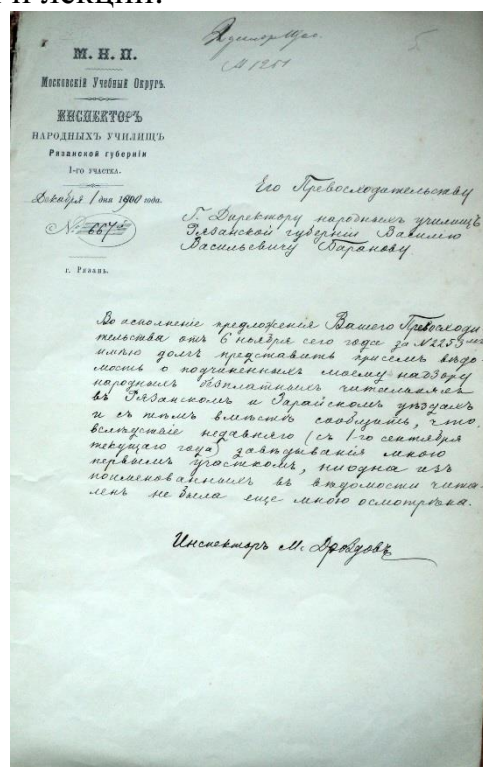 и лекции.
М. Н. П.
Московскій Учебный Округъ.
ИНСПЕКТОРЪ
НАРОДНЫХЪ УЧИЛИЩЪ
Рязанской губерніи
1-го УЧАСТКА.
Декабря 1 дня 1900 года.
№ 667
г. Рязань.
№ 1251
Его Превосходительству
Г. Директору народныхъ училищъ
Рязанской губерніи Василію
Васильевичу Баранову.
Во исполненіе предложенія Вашего Превосходи
тельства отъ 6 ноября сего года за №2253
имѣю долгъ представить при семъ вѣдо-
мость о подчиненныхъ моему надзору
народныхъ безплатныхъ читальняхъ
въ Рязанскомъ и Зарайскомъ уѣздахъ
и съ тѣмъ вмѣстѣ сообщить, что,
вслѣдствіе недавняго (съ 1-го сентября
текущаго года) завѣдыванія мною
первымъ участкомъ, ни одна изъ
поименованныхъ въ вѣдомости чита-
ленъ не была еще мною осмотрѣна.
Инспекторъ М. Дроздовъ